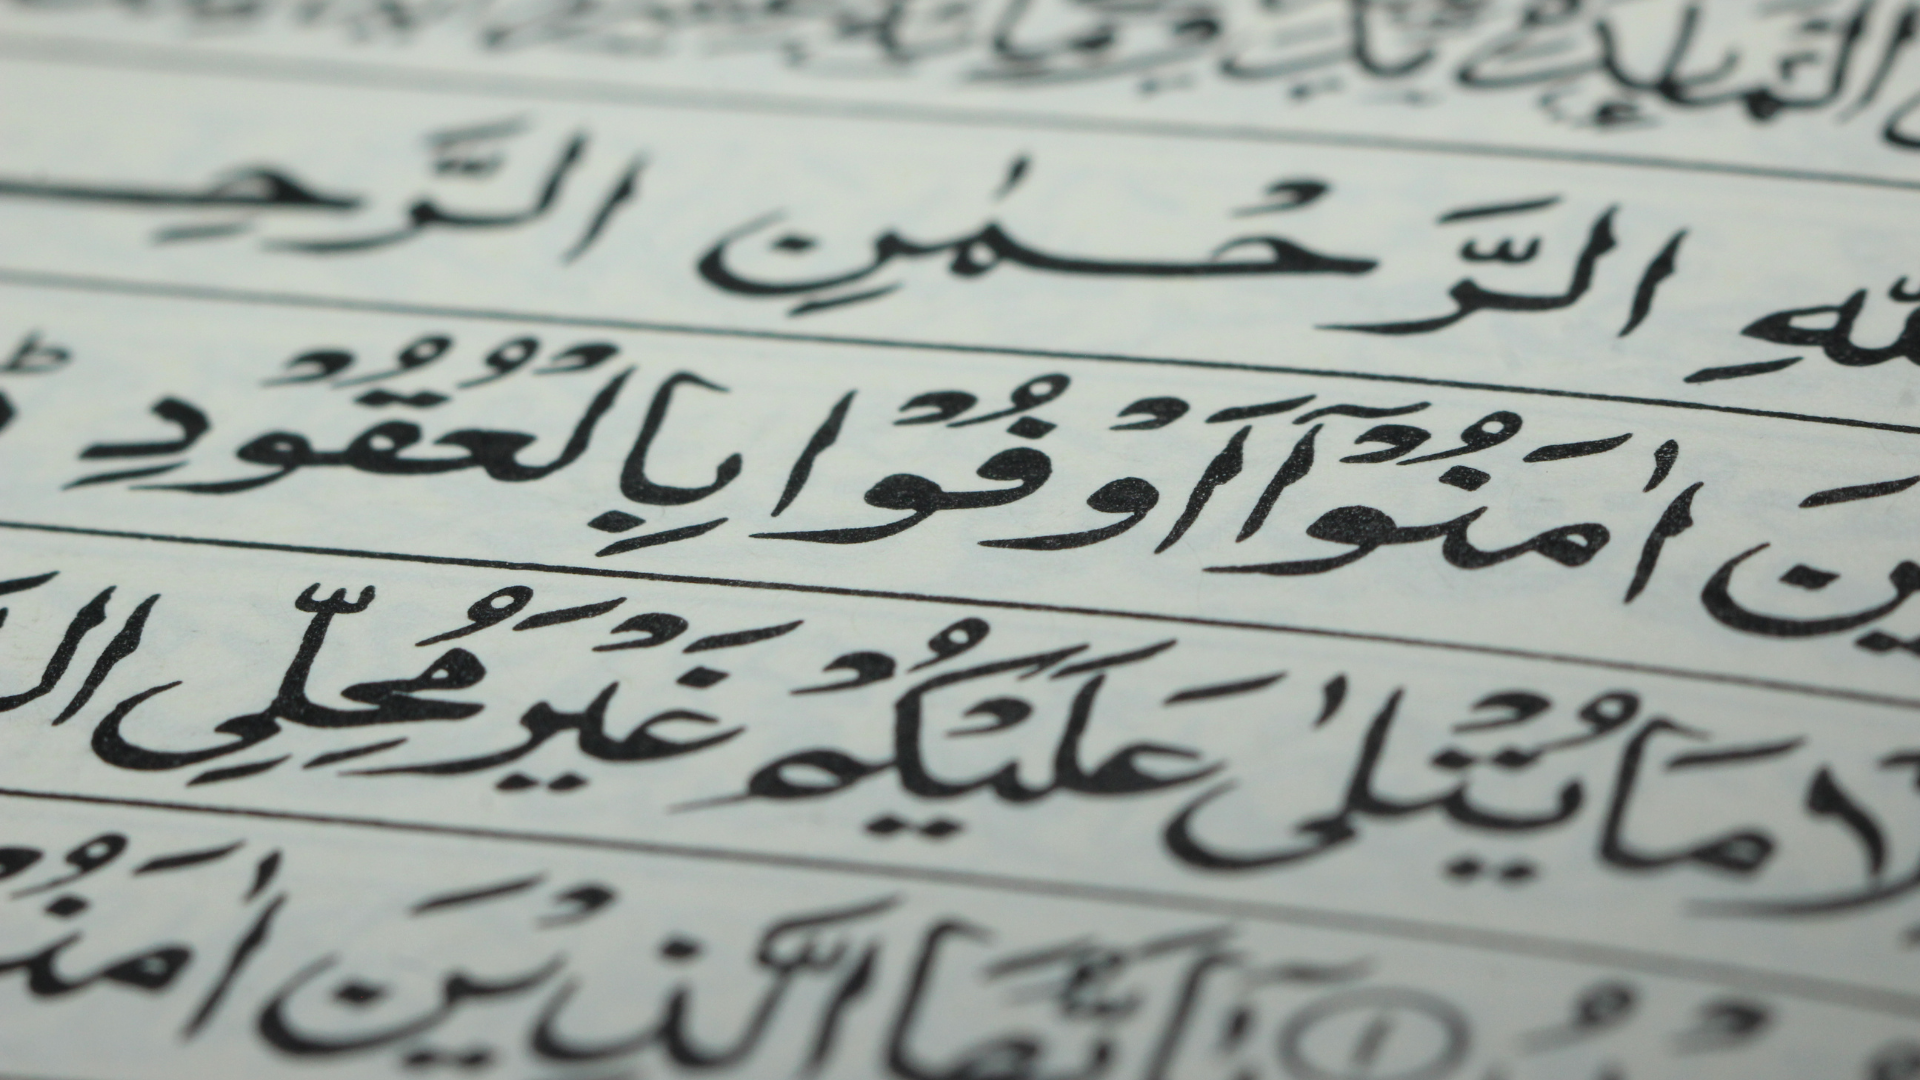 اللهِ الرَّحْمٰنِ الرَّحِ
يْنَ اٰمَنُوْۤا اَوْفُوْا بِالْعُقُوْدِ ؕ
مَا يُتْلٰى عَلَيْكُمْ غَيْرَ مُحِلِّي ال
۱ يٰۤاَيُّهَا الَّذِيْنَ اٰمَنُوْ